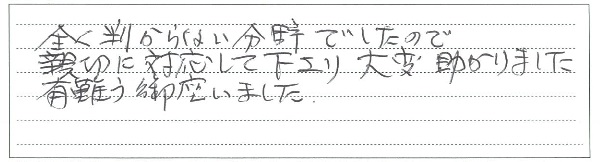 全く判からない分野でしたので
親切に対応して下エリ 大変助かりました
有難う御座いました.